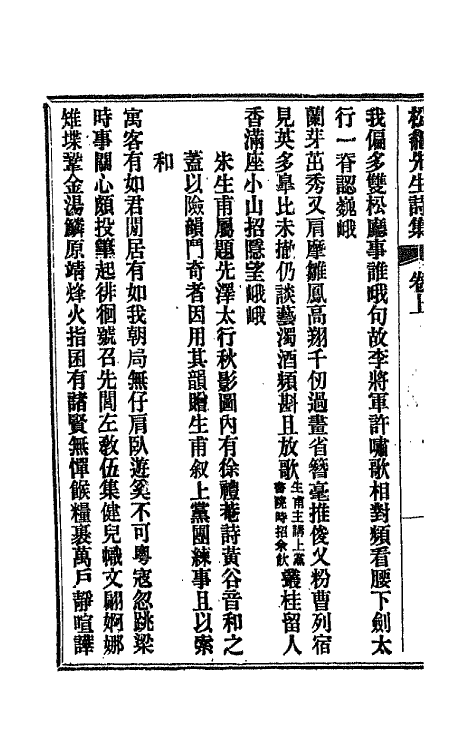 松龕先生詩集 卷上
我偏多雙松廳事誰哦句故李將軍許嘯歌相對頻看腰下劍太
行一脊認巍峨
蘭芽茁秀又肩摩雛鳳高翔千仞過畫省簪毫推俊乂粉曹列宿
見英多皐比未撤仍談藝濁酒頻斟且放歌生甫主講上黨書院時招余飲叢桂留人
香滿座小山招隱望峨峨
朱生甫屬題先澤太行秋影圖內有徐禮菴詩黃谷音和之
蓋以險韻鬥奇者因用其韻贈生甫叙上黨團練事且以索
和
寓客有如君閒居有如我朝局無仔肩臥遊奚不可粵寇忽跳梁
時事關心頗投肇起徘徊號召先閭左敎伍集健兒幟文翩婀娜
雉堞鞏金湯鱗原靖烽火指囷有諸賢無憚餱糧裹萬戶靜喧譁